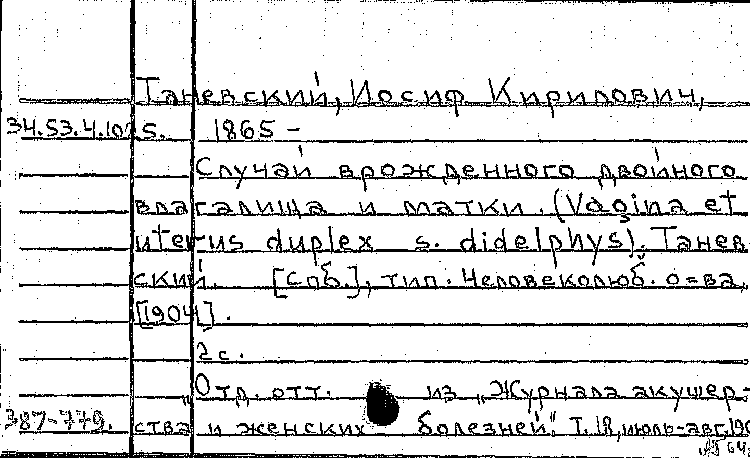 Таневский, Иосиф Кирилович,
34.53.4.1025. 1865 –
Случай врожденного двойного
влагалища и матки. (Vagina et
uterus duplex s. didelphys). Танев
ский. [Спб.], тип. Человеколюб. о=ва,
[1904].
2 с.
„Отд. отт. из „Журнала акушер-
387-779. ства и женских болезней". Т. 18, июль-авг.